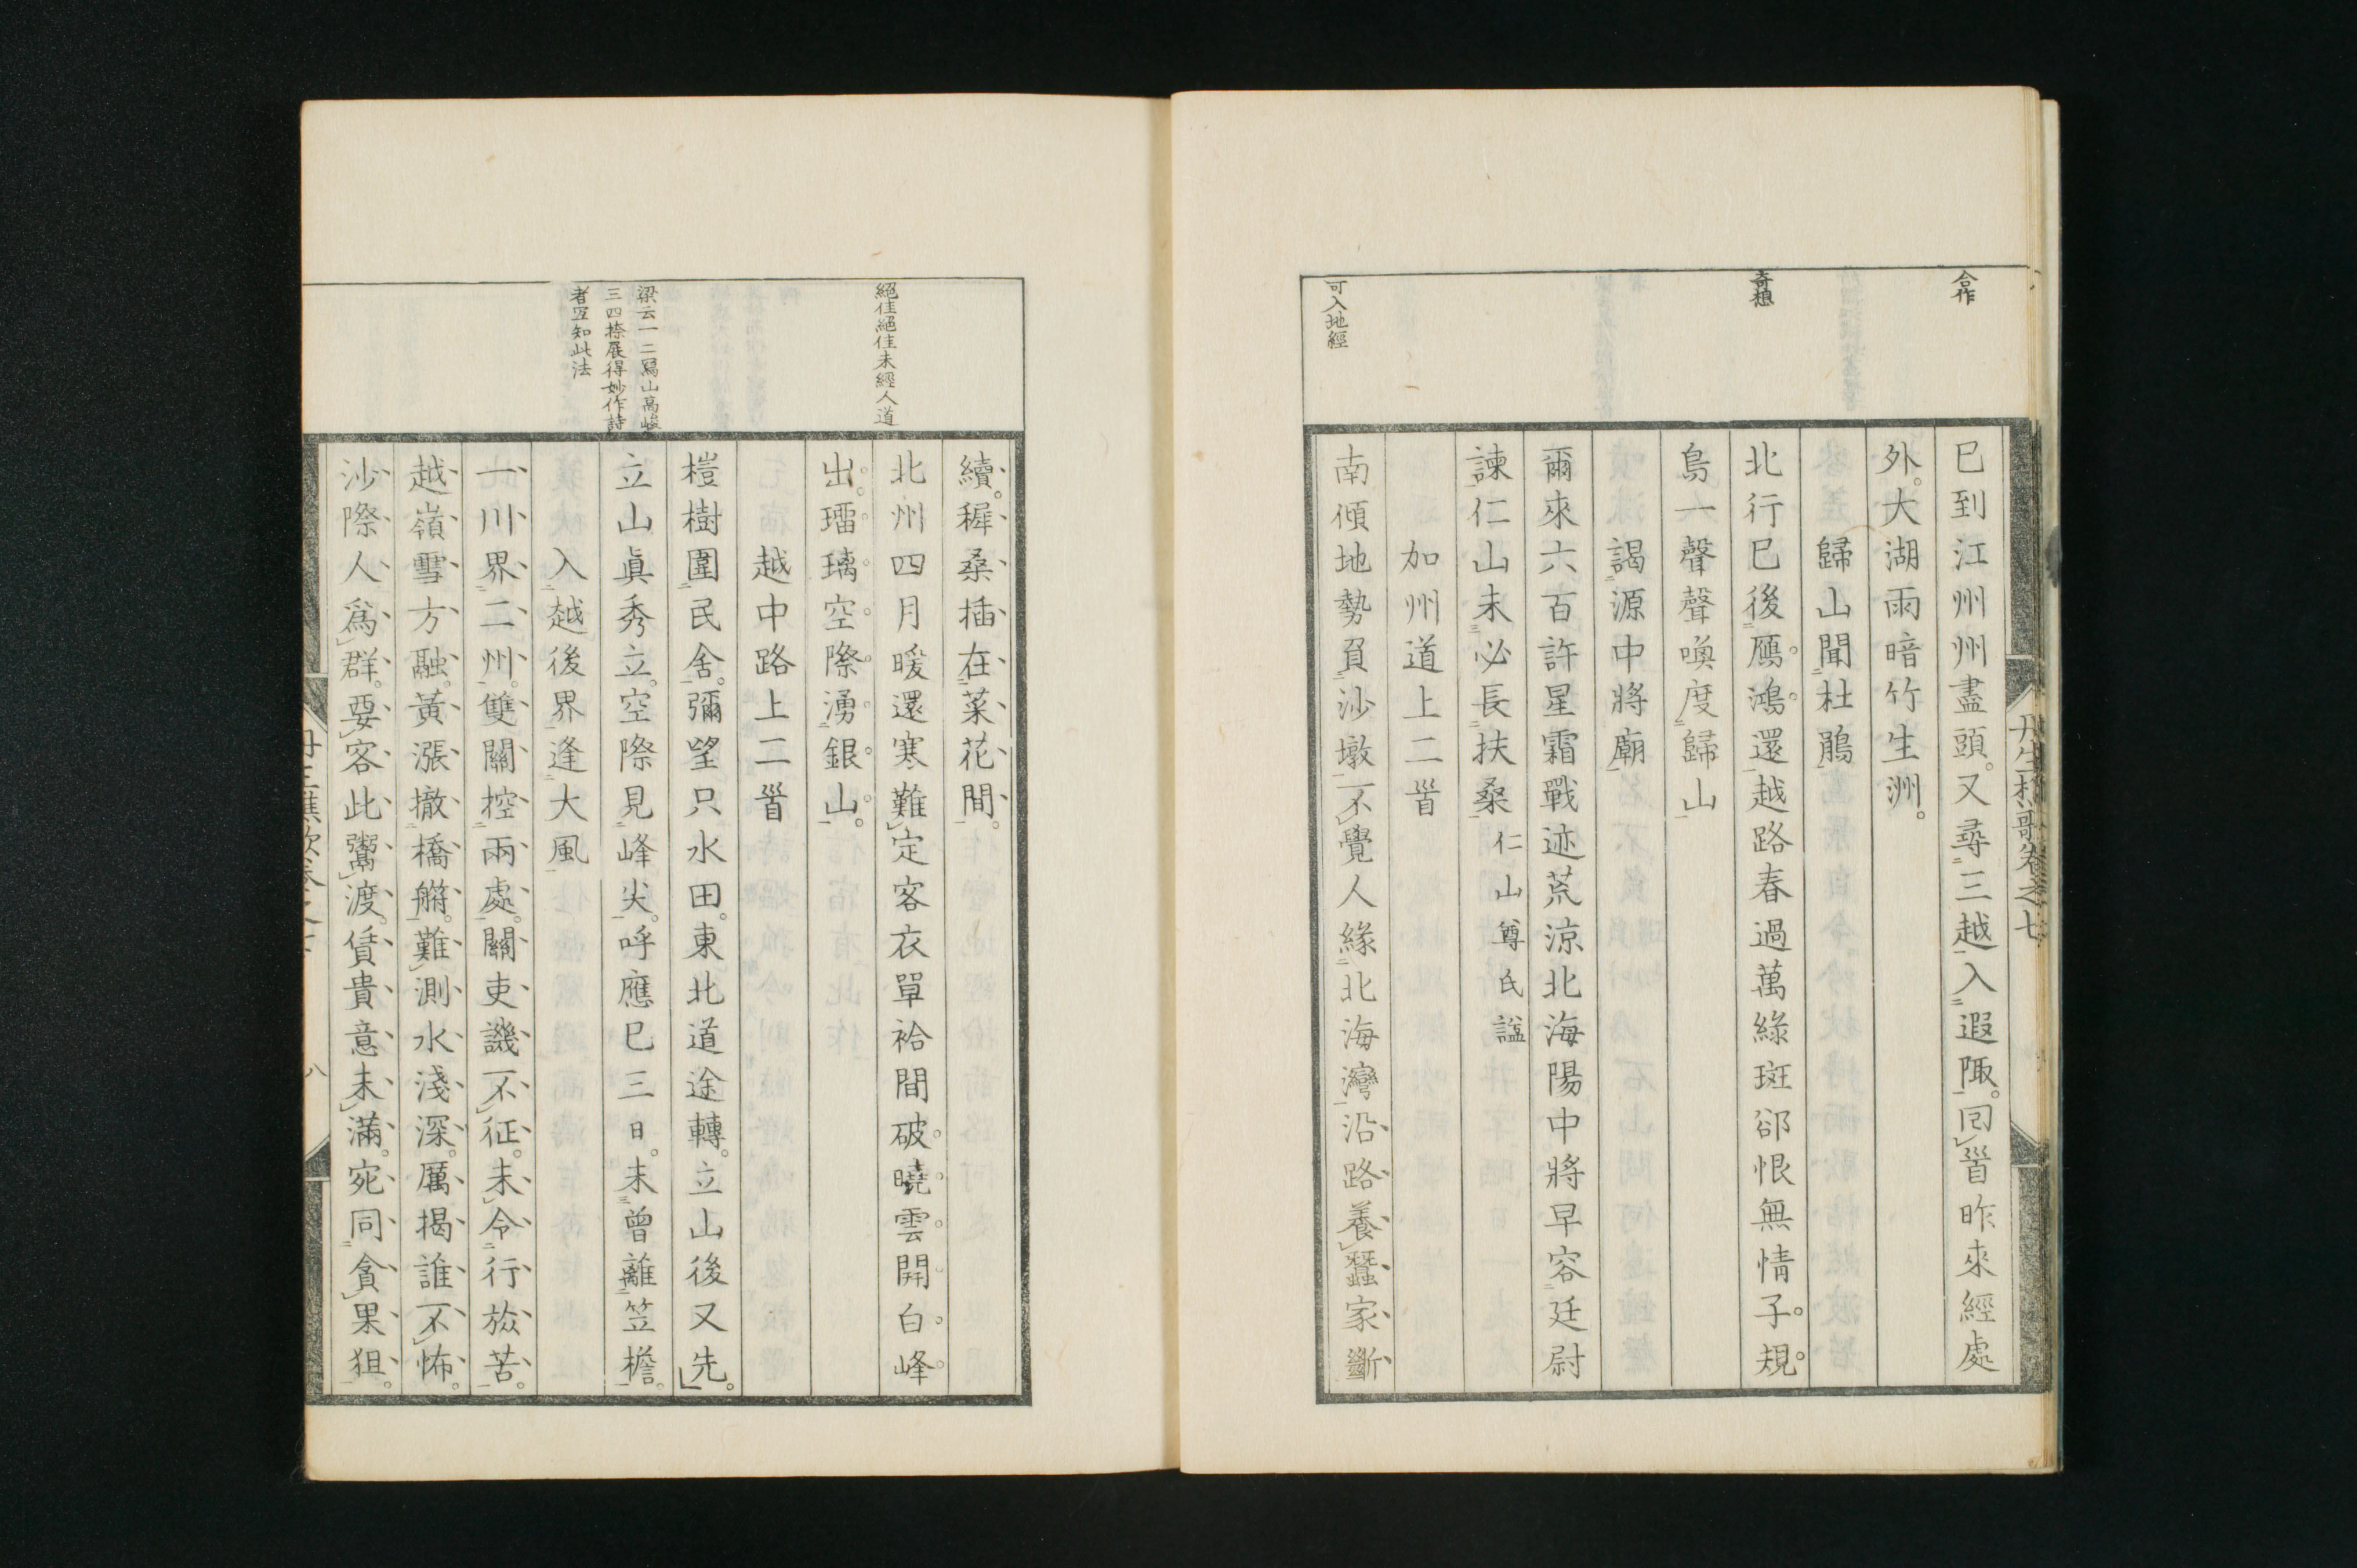 合作
奇想
可入地經
已到江州州盡頭。又尋三越入遐陬。回首昨來經處
外。大湖雨暗竹生洲。
歸山聞杜鵑
北行已後鴈鴻還越路春過萬綠斑郤恨無情子規
鳥一聲聲喚度歸山
謁源中將廟
爾來六百許星霜戰迹荒涼北海陽中將早容廷尉
諫仁山未必長扶桑仁山尊氏謚
加州道上二首
南傾地勢負沙墩不覺人緣北海灣沿路養蠶家斷
丹生樵歌卷之七
絕佳絕佳未經人道
梁云一二寫山高峻
三四捺展得妙作詩
者宜知此法
續。穉桑插在菜花間。
北州四月暖還寒難定客衣單袷間破曉雲開白峰
出。瑠璃空際湧銀山。
越中路上二首
榿樹圍民舍。彌望只水田。東北道途轉。立山後又先。
立山真秀立。空際見峰尖。呼應已三日。未曾離笠檐。
入越後界逢大風
一川界二州。雙關控兩處。關吏譏不征。未令行旅苦。
越嶺雪方融。黃漲撤橋艄。難測水淺深。厲揭誰不怖。
沙際人爲群。要客此鬻渡。賃貴意未滿。宛同貪果狙。
八